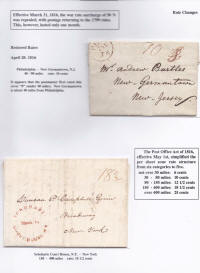 Rate Changes
Effective March 31, 1816, the war rate surcharge of 50 %
was repealed, with postage returning to the 1799 rates.
This, however, lasted only one month.
Restored Rates
April 20, 1816
Philadelphia - New Germantown, N.J.
40 - 90 miles rate: 10 cents
It appears that the postmaster first rated this
cover "8" under 40 miles. New Germantown
is about 60 miles from Philadelphia.
10
Mr. Andrew Bartles
New-Germantown
New Jersey
The Post Office Act of 1816,
effective May 1st, simplified the
per sheet zone rate structure
from six categories to five.
not over 30 miles: 6 cents
30 - 80 miles: 10 cents
80 - 150 miles: 12 1/2 cents
150 - 400 miles: 18 1/2 cents
over 400 miles: 25 cents
18½
Duncan P. Campbell
New York
Schoharie Court House, N.Y. - New York
150 - 400 miles: rate 18 1/2 cents